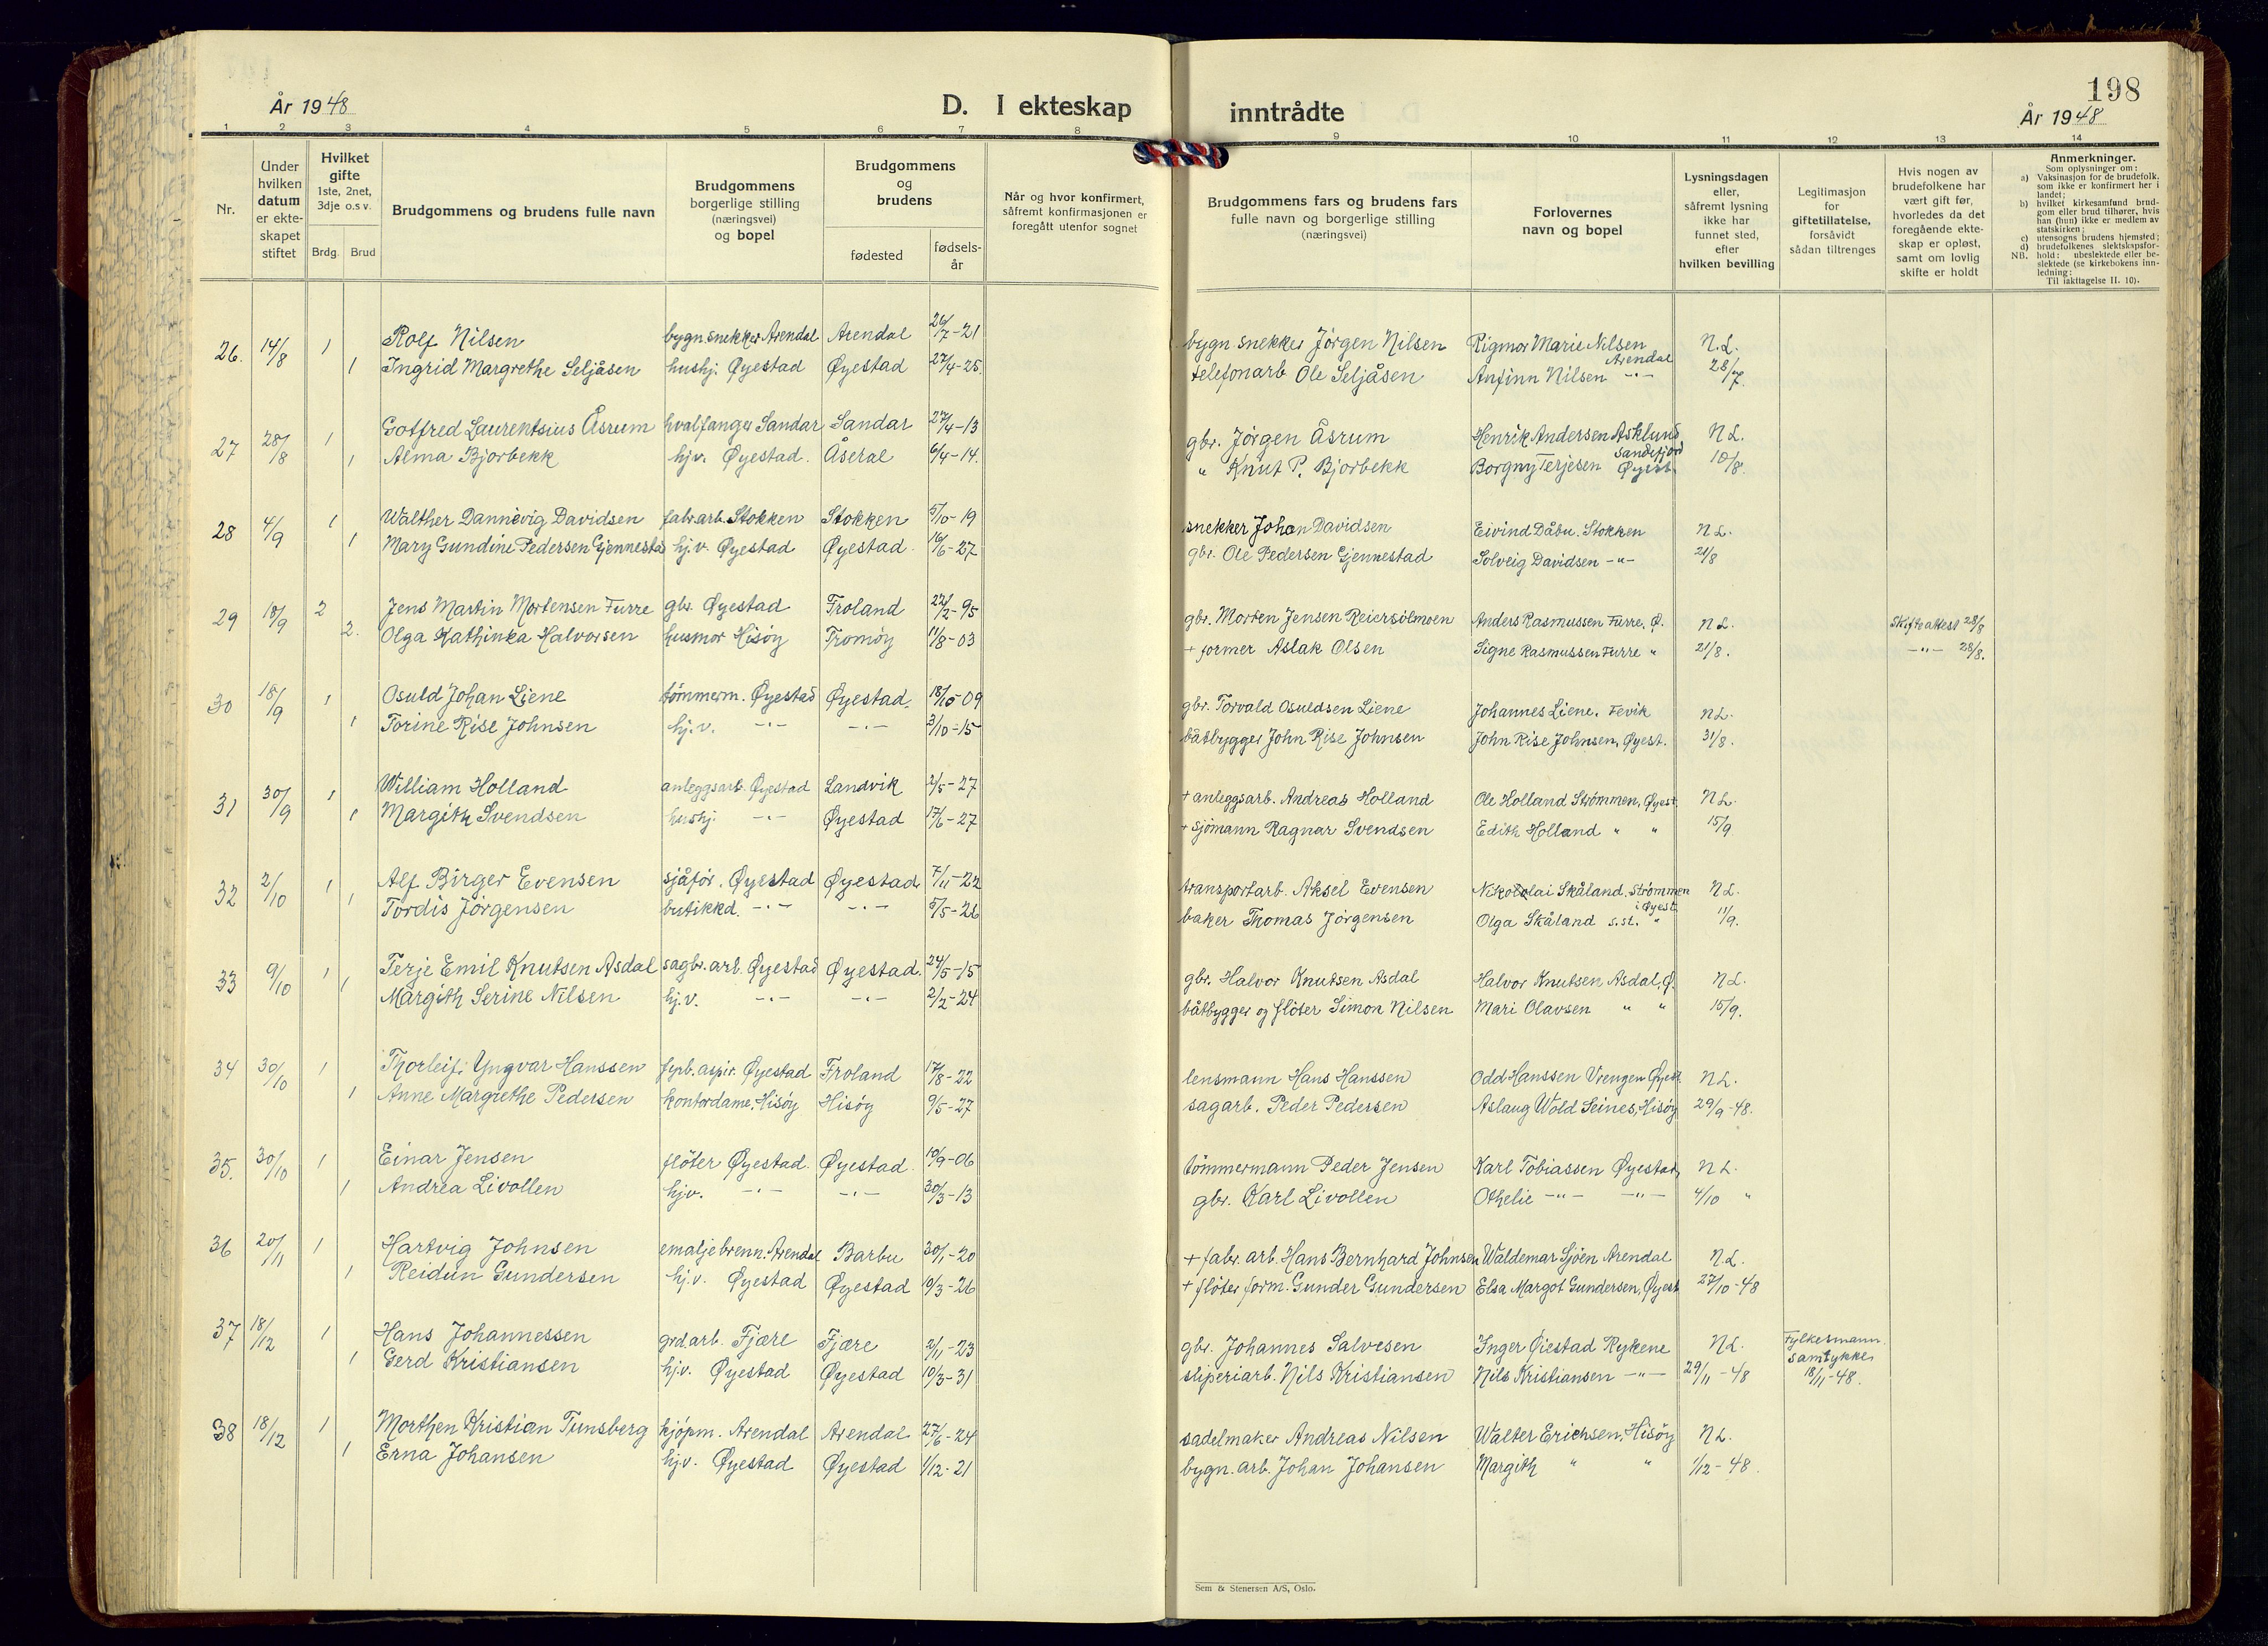 198
År 1948
D. I ekteskap inntrådte
År 1948
1 2 3 4 5 6 7 8 9 10 11 12 13 14
Nr.
Under hvilken datum er ekteskapet stiftet
Hvilket gifte 1ste, 2net, 3dje o.s v.
Brdg. Brud
Brudgommens og brudens fulle navn
Brudgommens borgerlige stilling (næringsvei) og bopel
Brudgommens og brudens
fødested
fødsels-år
Når og hvor konfirmert, såfremt konfirmasjonen er foregått utenfor sognet
Brudgommens fars og brudens fars fulle navn og borgerlige stilling (næringsvei)
Forlovernes navn og bopel
Lysningsdagen eller, såfremt lysning ikke har funnet sted, efter hvilken bevilling
Legitimasjon for giftetillatelse, forsåvidt sådan tiltrenges
Hvis nogen av brudefolkene har vært gift før, hvorledes da det foregående ekteskap er opløst, samt om lovlig skifte er holdt
Anmerkninger.
Som oplysninger om:
a) Vaksinasjon for de brudefolk, som ikke er konfirmert her i landet;
b) hvilket kirkesamfund brudgom eller brud tilhører, hvis han (hun) ikke er medlem av statskirken;
c) utensogns brudens hjemsted;
d) brudefolkenes slektskapsforhold: ubeslektede eller beslektede (se kirkebokens innledning:
NB. Til iakttagelse II. 10).
26. 14/8 1 Rolf Nilsen bygn.snekker Arendal Arendal 26/7-21 bygn. snekker Jörgen Nilsen Rigmor Marie Nilsen Arendal N.L.
1 Ingrid Margrethe Seljåsen hushj. Øyestad Øyestad 27/4-25. telefonarb Ole Seljåsen Anfinn Nilsen -"- 28/7.
27 28/8 1 Gotfred Laurentsius Åsrum hvalfanger Sandar Sandar 27/4-13 gbr. Jörgen Åsrum Henrik Andersen Asklund Sandefjord N L.
1 Alma Bjorbekk hj.v. Øyestad. Åseral 6/4-14. " Knut P. Bjorbekk Borgny Terjesen Øyest. 10/8.
28 4/9 1 Walther Dannevig Davidsen fabr.arb. Stokken Stokken 5/10-19 snekker Johan Davidsen Eivind Dåbu. Stokken N L.
1 Mary Gundine Pedersen Gjennesta hj.v. Øyestad Øyestad. 16/6-27 gbr. Ole Pedersen Gjennestad Solveig Davidsen -"- 21/8
29 18/9 2 Jens Martin Mortensen Furre gbr. Øyestad Froland 22/2-95 gbr. Morten Jensen Reiersölmoen Anders Rasmussen Furre. Ø. N L. Skifteattest 28/8
2. Olga Kathinka Halvorsen husmor Hisöy Tromöy 11/8-03 + former Aslak Olsen Signe Rasmussen Furre " 21/8. -"- 28/8.
30 18/9 1 Osuld Johan Liene tömmerm. Øyestad Øyestad. 18/10-09 gbr. Torvald Osuldsen Liene Johannes Liene. Fevik N L.
1 Torine Rise Johnsen hj.v. -"- -"- 3/10-15 båtbygger John Rise Johnsen John Rise Johnsen, Øyest. 31/8.
31 30/9 1 William Holland anleggsarb. Øyestad Landvik 2/5-27 + anleggsarb. Andreas Holland Ole Holland Strömmen, Øyest. N L.
1 Margith Svendsen hushj. -"- Øyestad 17/6-27 + sjömann Ragnar Svendsen Edith Holland " " 15/9
32 2/10 1 Alf Birger Evensen sjåför. Øyestad Øyestad. 7/11-22 transportarb. Aksel Evensen Nikolai Skåland. Strömmen i Øyest. N L.
1 Tordis Jörgensen butikkd. -"- -"- 5/5-26 baker Thomas Jörgensen Olga Skåland s.st. " 11/9.
33 9/10 1 Terje Emil Knutsen Asdal sagbr.arb. Øyestad Øyestad. 24/5-15 gbr. Halvor Knutsen Asdal Halvor Knutsen Asdal, Ø. N L.
1 Margith Serine Nilsen hj.v. -"- -"- 2/2-24 båtbygger og flöter Simon Nilsen Mari Olavsen " " 15/9.
34 30/10 1 Thorleif Yngvar Hanssen fyrb.aspir. Øyestad Froland 17/8-22 lensmann Hans Hanssen Odd Hanssen Vrengen Øyest. N L.
1 Anne Margrethe Pedersen kontordame, Hisöy Hisöy 9/5-27 sagarb. Peder Pedersen Aslaug Wold Seines, Hisöy 29/9-48.
35. 30/10 1 Einar Jensen flöter Øyestad. Øyestad. 10/9-06 tömmermann Peder Jensen Karl Tobiassen Øyestad, N L.
1 Andrea Livollen hjv. -"- -"- 30/3-13 gbr. Karl Livollen Othelie -"- -"- 4/10 "
36 20/11 1 Hartvig Johnsen emaljebrenn. Arendal Barbu 30/1-20 + fabr. arb. Hans Bernhard Johnsen Waldemar Sjöen Arendal N.L.
1 Reidun Gundersen hj.v. Øyestad Øyestad 10/3-26 + flöter form. Gunder Gundersen Elsa Margot Gundersen, Øyest 27/10-48
37 18/12 1 Hans Johannessen grdarb. Fjære Fjære 2/11-23 gbr. Johannes Salvesen Inger Øiestad Rykene N L. Fylkesmann. samtykke 18/11-48.
1 Gerd Kristiansen hj.v. Øyestad Øyestad 10/3-31 sliperiarb. Nils Kristiansen Nils Kristiansen -"- 29/11-48
38 18/12 1 Morthen Kristian Tunsberg kjöpm. Arendal Arendal 27/6-24 sadelmaker Andreas Nilsen Walter Erichsen, Hisöy N L.
1 Erna Johansen hj.v. Øyestad Øyestad 1/12-21 bygn. arb. Johan Johansen Margith " " 1/12-48.
Sem & Stenersen A/S, Oslo.